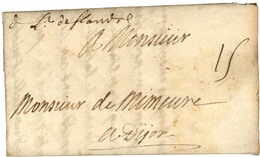 de Lr. de flandre
A Monsieur
15
Monsieur de Mimeure
a Dijon